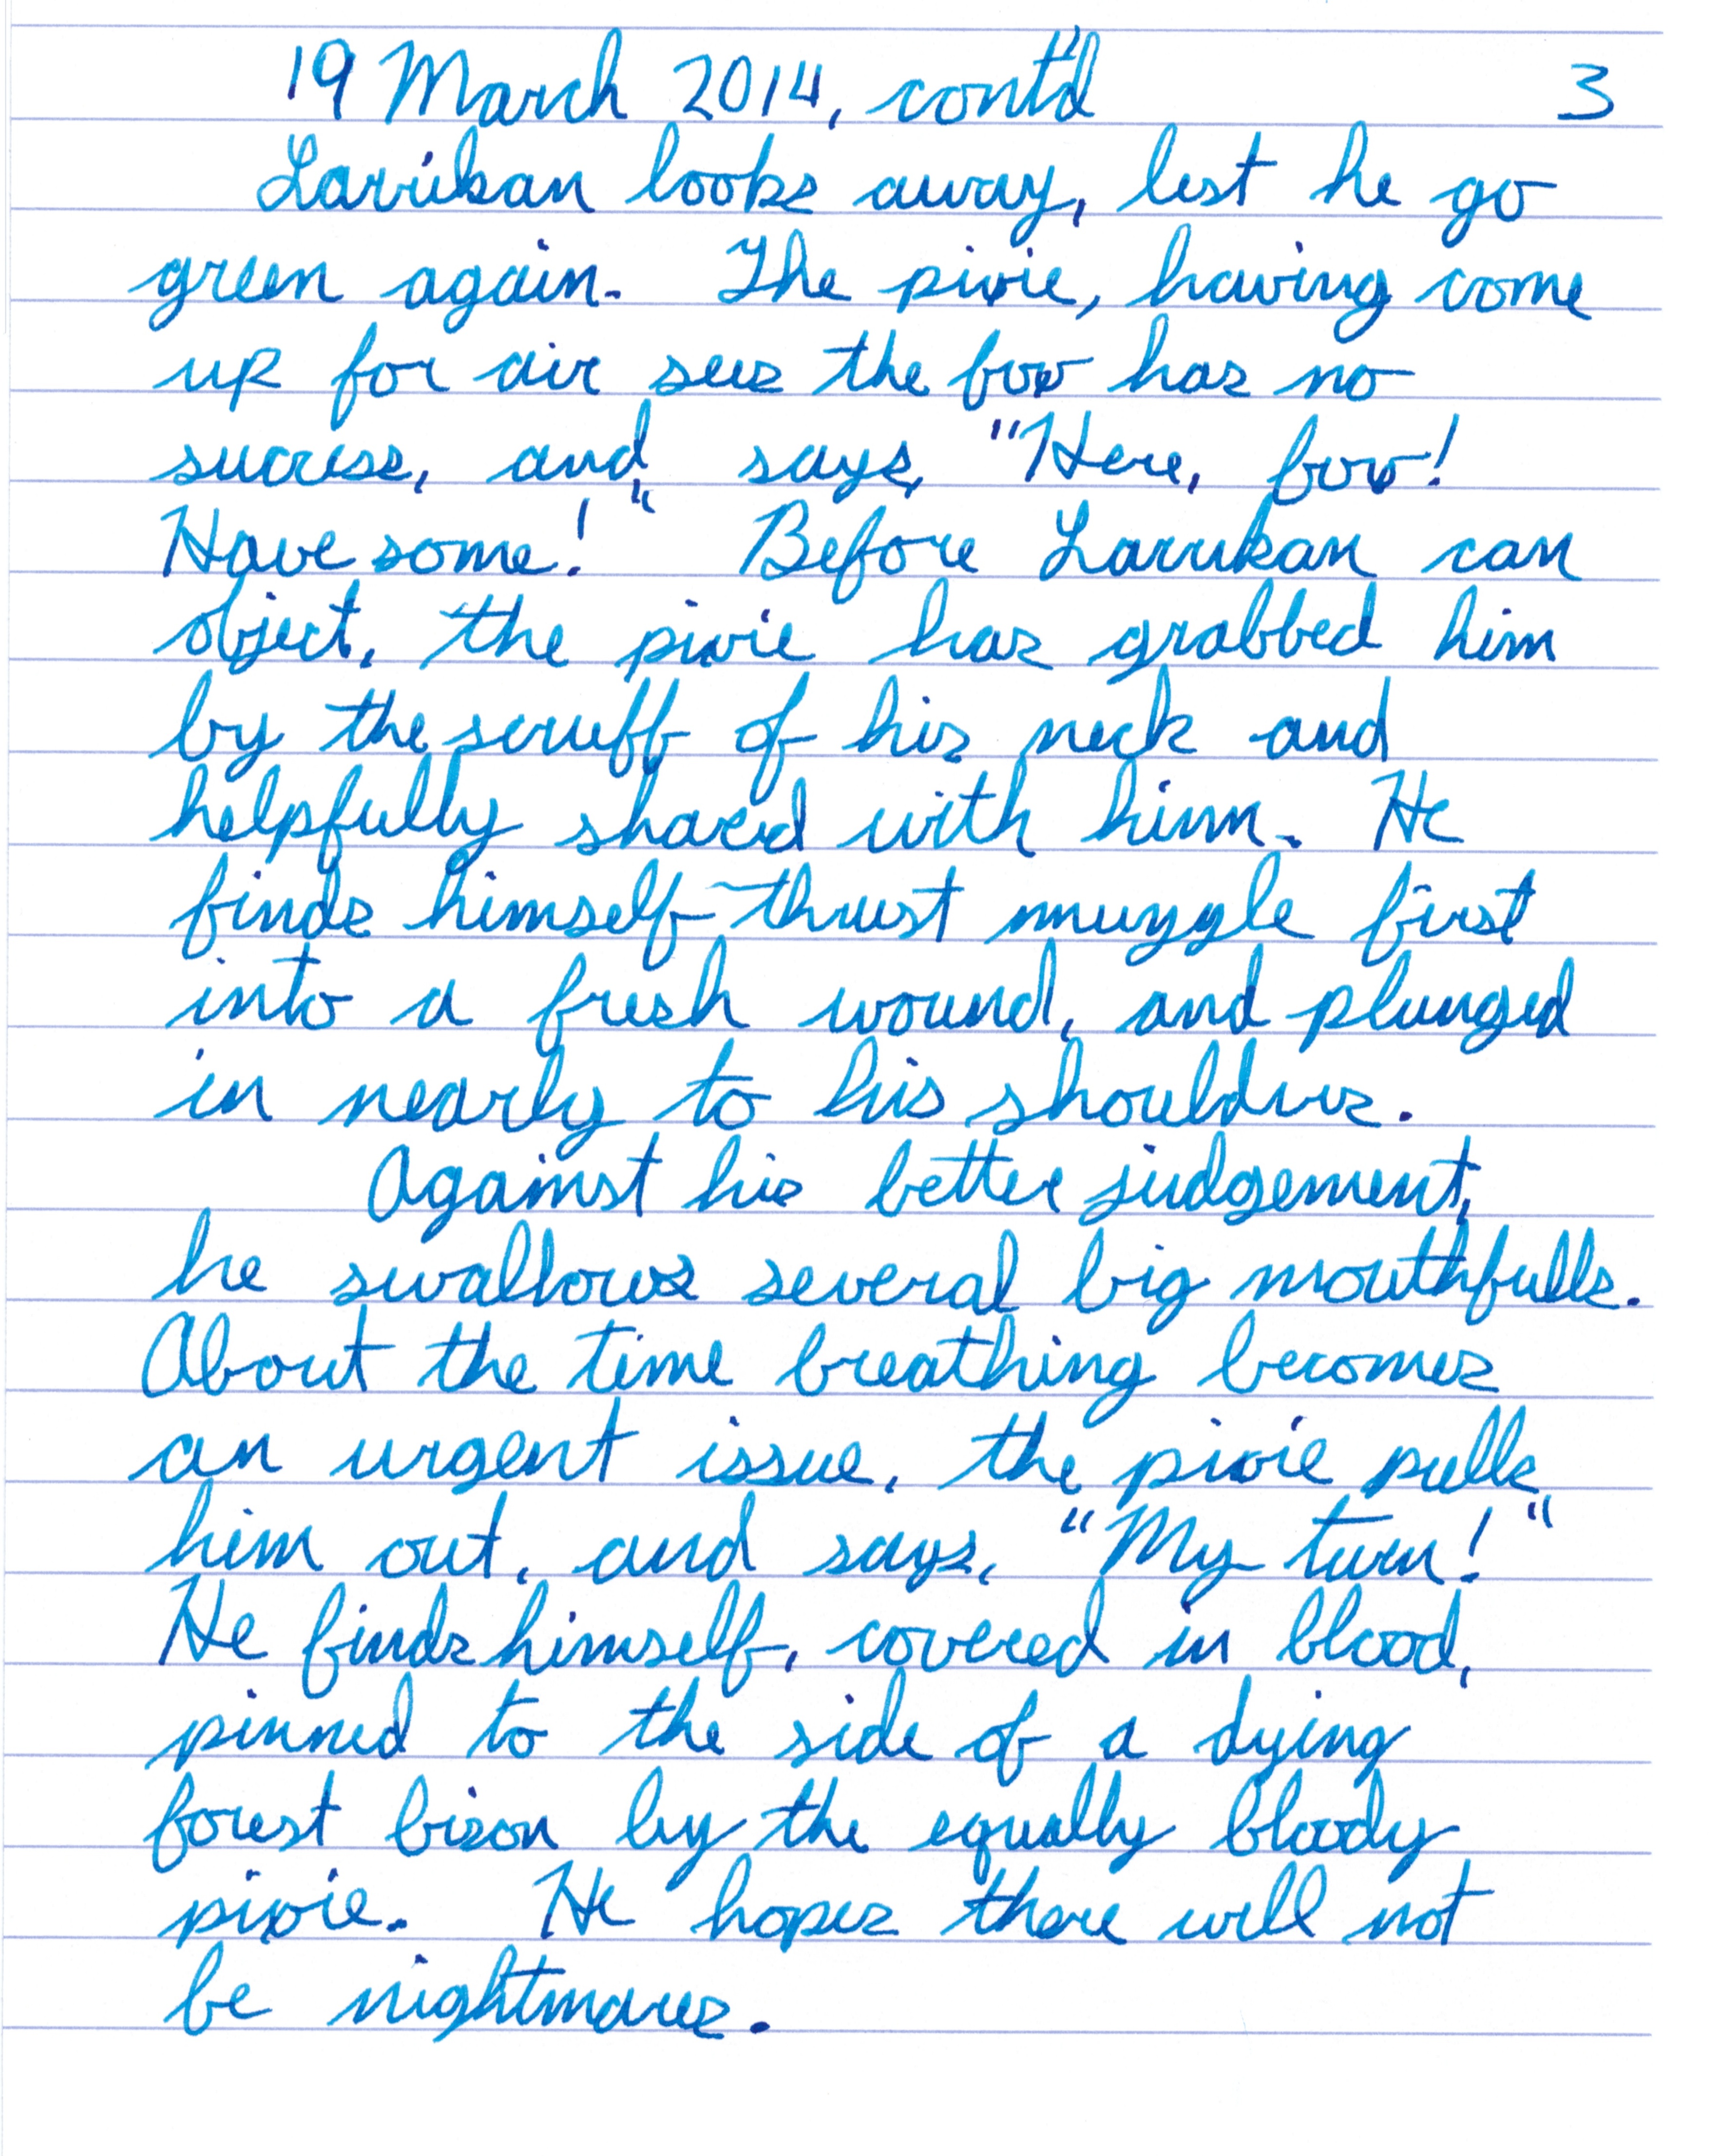 19 March 2014, cont'd 3
Larrikan looks away, lest he go
green again. The pixie, having come
up for air sees the fox has no
success, and says, "Here, fox!
Have some!" Before Larrikan can
object, the pixie has grabbed him
by the scruff of his neck and
helpfully shared with him. He
finds himself thrust muzzle first
into a fresh wound, and plunged
in nearly to his shoulders.
Against his better judgement,
he swallows several big mouthfulls.
About the time breathing becomes
an urgent issue, the pixie pulls
him out, and says, "My turn!"
He finds himself, covered in blood,
pinned to the side of a dying
forest bison by the equally bloody
pixie. He hopes there will not
be nightmares.